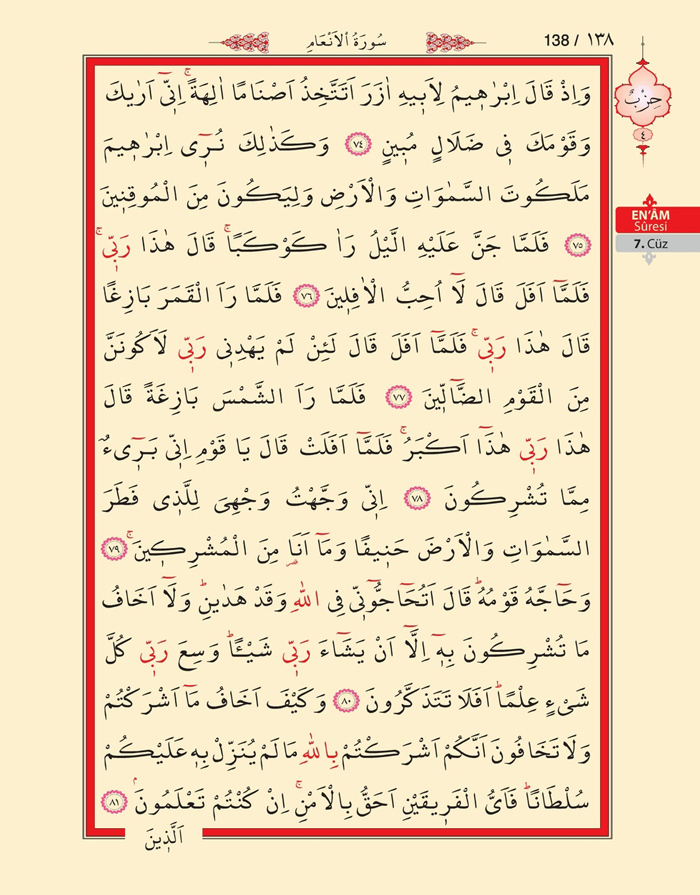 سُورَةُ الْاَنْعَامِ
138 / ١٣٨
حِزْبٌ
٤
EN'ÂM
Sûresi
7. Cüz
وَاِذْ قَالَ اِبْرٰه۪يمُ لِاَب۪يهِ اٰزَرَ اَتَتَّخِذُ اَصْنَامًا اٰلِهَةًۚ اِنّ۪ٓي اَرٰيكَ
وَقَوْمَكَ ف۪ي ضَلَالٍ مُب۪ينٍ ﴿٧٤﴾ وَكَذٰلِكَ نُر۪ٓي اِبْرٰه۪يمَ
مَلَكُوتَ السَّمٰوَاتِ وَالْاَرْضِ وَلِيَكُونَ مِنَ الْمُوقِن۪ينَ
﴿٧٥﴾ فَلَمَّا جَنَّ عَلَيْهِ الَّيْلُ رَاٰ كَوْكَبًاۚ قَالَ هٰذَا رَبّ۪يۚ
فَلَمَّٓا اَفَلَ قَالَ لَٓا اُحِبُّ الْاٰفِل۪ينَ ﴿٧٦﴾ فَلَمَّا رَاَ الْقَمَرَ بَازِغًا
قَالَ هٰذَا رَبّ۪يۚ فَلَمَّٓا اَفَلَ قَالَ لَئِنْ لَمْ يَهْدِن۪ي رَبّ۪ي لَاَكُونَنَّ
مِنَ الْقَوْمِ الضَّٓالّ۪ينَ ﴿٧٧﴾ فَلَمَّا رَاَ الشَّمْسَ بَازِغَةً قَالَ
هٰذَا رَبّ۪ي هٰذَٓا اَكْبَرُۚ فَلَمَّٓا اَفَلَتْ قَالَ يَا قَوْمِ اِنّ۪ي بَر۪ٓيءٌ
مِمَّا تُشْرِكُونَ ﴿٧٨﴾ اِنّ۪ي وَجَّهْتُ وَجْهِيَ لِلَّذ۪ي فَطَرَ
السَّمٰوَاتِ وَالْاَرْضَ حَن۪يفًا وَمَٓا اَنَا۬ مِنَ الْمُشْرِك۪ينَۚ ﴿٧٩﴾
وَحَٓاجَّهُ قَوْمُهُۜ قَالَ اَتُحَٓاجُّٓونّ۪ي فِي اللّٰهِ وَقَدْ هَدٰينِۜ وَلَٓا اَخَافُ
مَا تُشْرِكُونَ بِه۪ٓ اِلَّٓا اَنْ يَشَٓاءَ رَبّ۪ي شَيْـًٔاۜ وَسِعَ رَبّ۪ي كُلَّ
شَيْءٍ عِلْمًاۜ اَفَلَا تَتَذَكَّرُونَ ﴿٨٠﴾ وَكَيْفَ اَخَافُ مَٓا اَشْرَكْتُمْ
وَلَا تَخَافُونَ اَنَّكُمْ اَشْرَكْتُمْ بِاللّٰهِ مَا لَمْ يُنَزِّلْ بِه۪ عَلَيْكُمْ
سُلْطَانًاۜ فَاَيُّ الْفَر۪يقَيْنِ اَحَقُّ بِالْاَمْنِۚ اِنْ كُنْتُمْ تَعْلَمُونَۢ ﴿٨١﴾
اَلَّذ۪ينَ